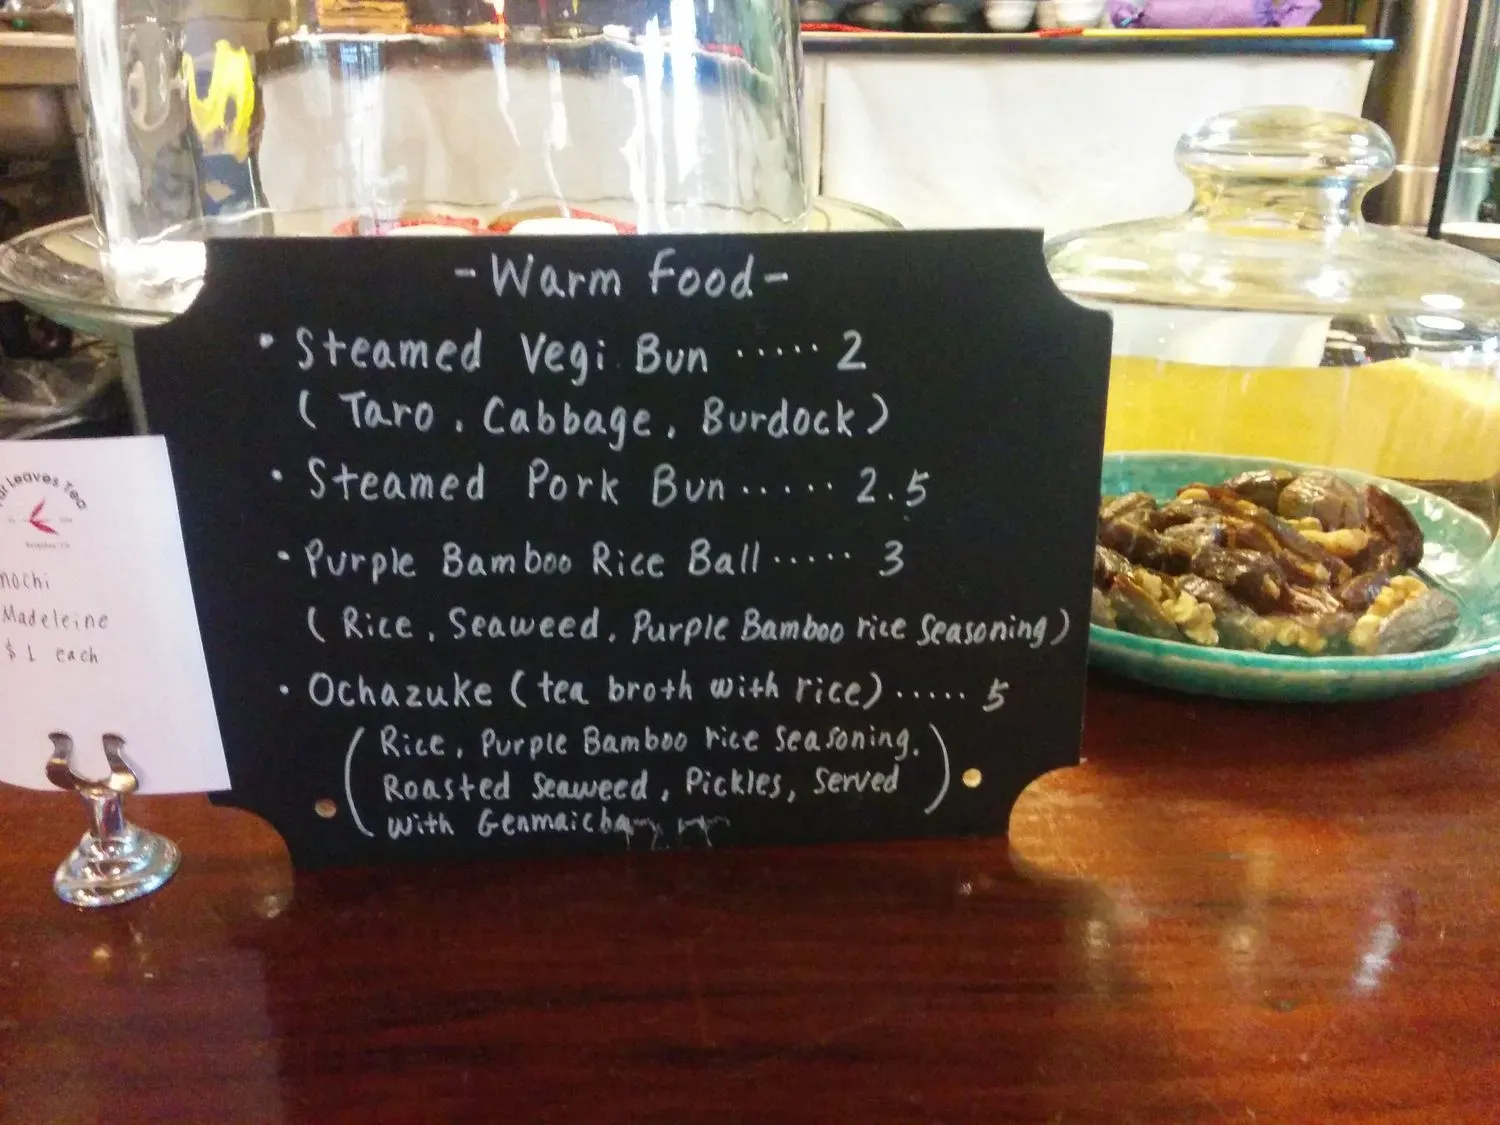 - Warm Food -
• Steamed Vegi Bun ..... 2
( Taro, Cabbage, Burdock )
• Steamed Pork Bun ..... 2.5
• Purple Bamboo Rice Ball ..... 3
( Rice, Seaweed, Purple Bamboo rice Seasoning )
• Ochazuke ( tea broth with rice ) ..... 5
( Rice, Purple Bamboo rice seasoning.
Roasted Seaweed, Pickles, Served )
with Genmaicha
Leaves Tea
Madeleine
$1 each